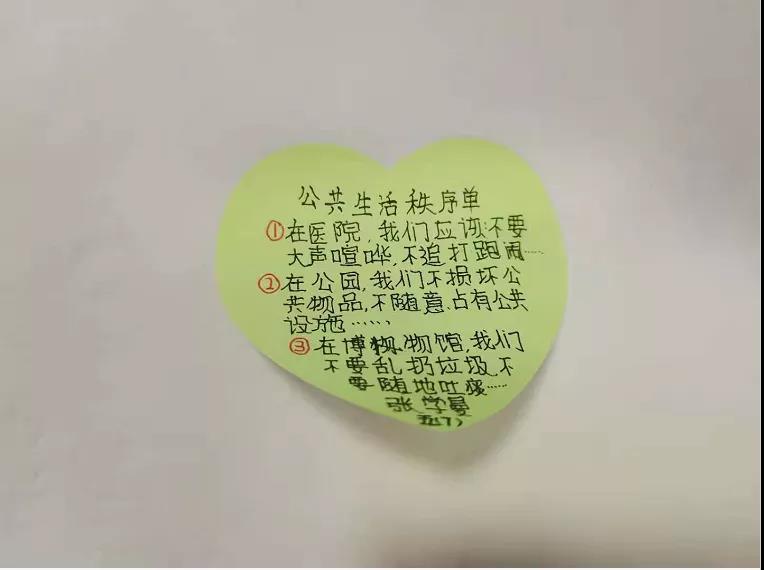 公共生活秩序单
①在医院,我们应该:不要
大声喧哗,不追打跑闹……
②在公园,我们不损坏公
共物品,不随意占有公共
设施……
③在博物馆,我们
不要乱扔垃圾,不
要随地吐痰……
张学曼
五(7)